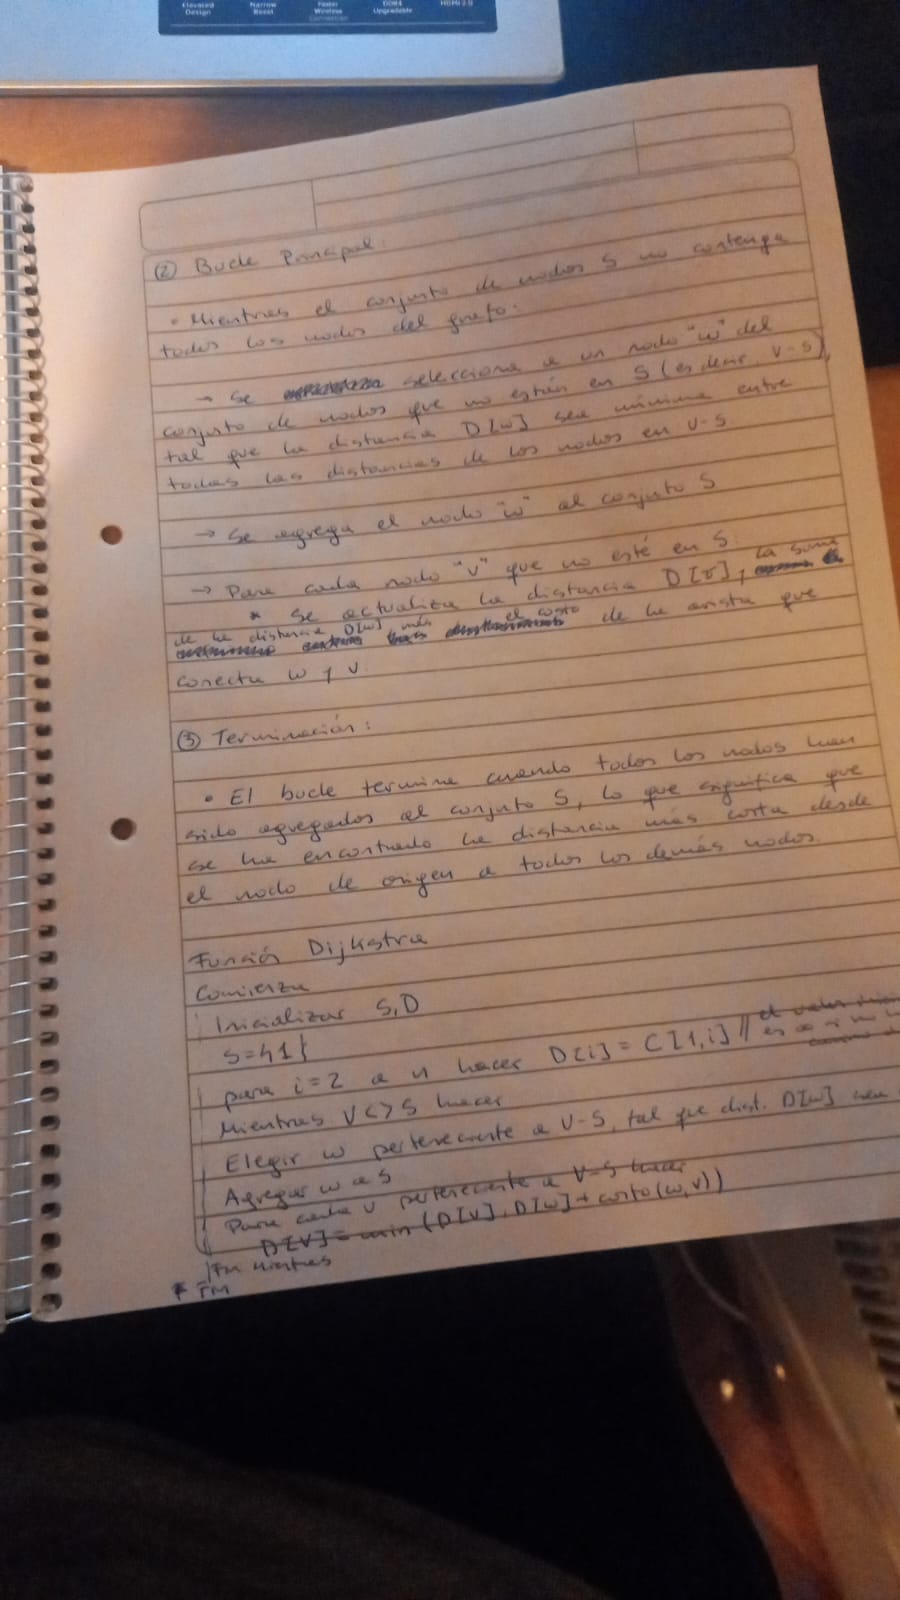 Elevated Design
Narrow Bezel
Faster Wireless Connection
DDR4 Upgradable
HDMI 2.0
② Bucle Principal:
• Mientras el conjunto de nodos S no contenga
todos los nodos del grafo:
→ Se selecciona a un nodo "w" del
conjunto de nodos que no están en S (es decir, V-S),
tal que la distancia D[w] sea mínima entre
todas las distancias de los nodos en V-S.
→ Se agrega el nodo "w" al conjunto S
→ Para cada nodo "v" que no esté en S:
* Se actualiza la distancia D[v], la suma
de la distancia D[w] más el costo de la arista que
conecta w y v.
③ Terminación:
• El bucle termina cuando todos los nodos han
sido agregados al conjunto S, lo que significa que
se ha encontrado la distancia más corta desde
el nodo de origen a todos los demás nodos.
Función Dijkstra
Comienza
Inicializar S,D
S={1}
para i=2 a n hacer D[i] = C[1,i] // el valor
Mientras V<>S hacer
Elegir w perteneciente a V-S, tal que dist. D[w] sea
Agregar w a S
Para cada v perteneciente a V-S hacer
D[V] = min (D[V], D[w] + costo(w,v))
Fin Mientras
Fin